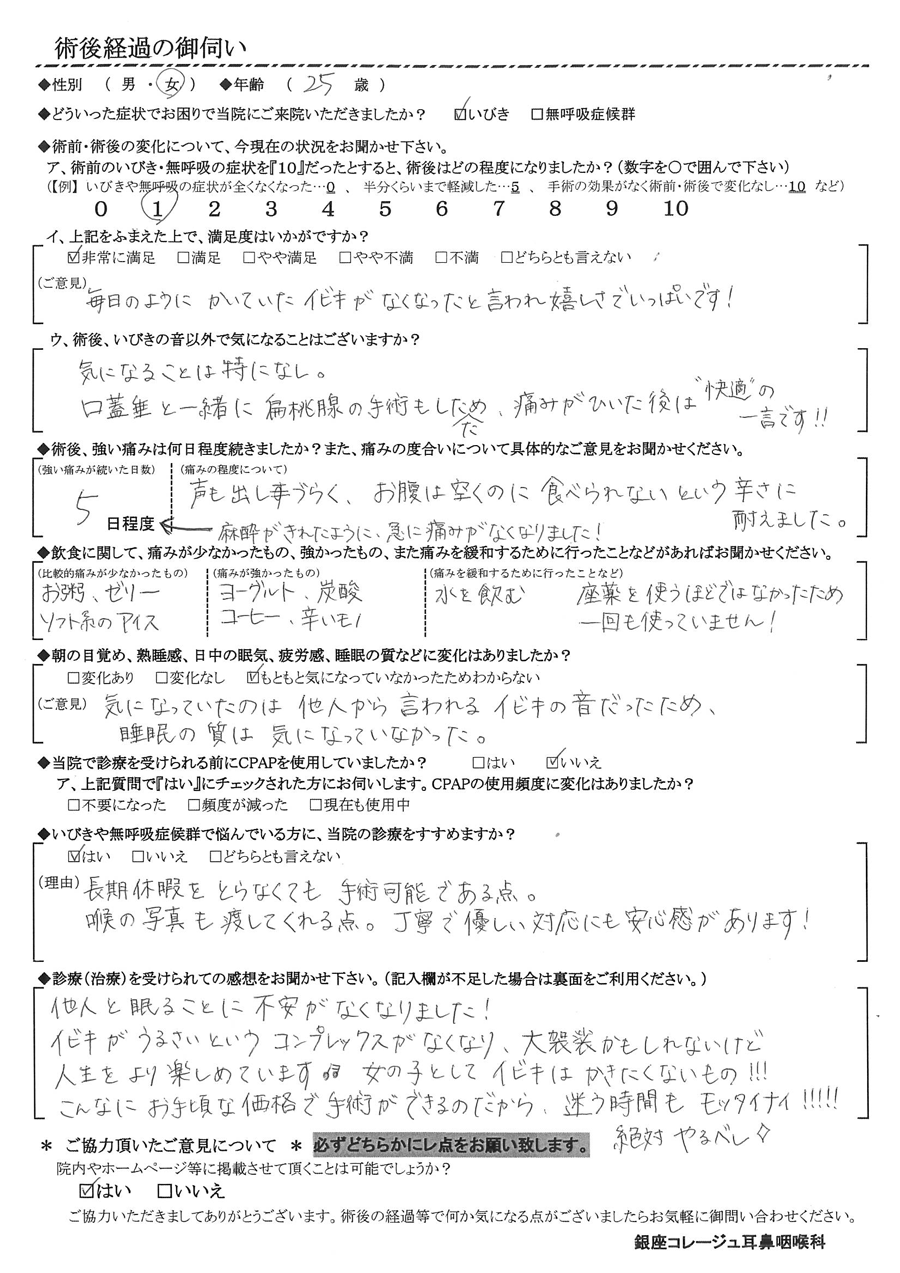 術後経過の御伺い
◆性別 ( 男 ・ 女 ) ◆年齢 ( 25 歳 )
◆どういった症状でお困りで当院にご来院いただきましたか? ☑いびき □無呼吸症候群
◆術前・術後の変化について、今現在の状況をお聞かせ下さい。
ア、術前のいびき・無呼吸の症状を『10』だったとすると、術後はどの程度になりましたか?(数字を○で囲んで下さい)
(【例】 いびきや無呼吸の症状が全くなくなった…0 、 半分くらいまで軽減した…5 、 手術の効果がなく術前・術後で変化なし…10 など)
0 1 2 3 4 5 6 7 8 9 10
イ、上記をふまえた上で、満足度はいかがですか?
☑非常に満足 □満足 □やや満足 □やや不満 □不満 □どちらとも言えない
(ご意見)
毎日のように かいていた イビキが なくなったと言われ嬉しさでいっぱいです!
ウ、術後、いびきの音以外で気になることはございますか?
気になることは特になし。
口蓋垂と一緒に 扁桃腺の手術もしたため、痛みがひいた後は"快適"の
一言です!!
◆術後、強い痛みは何日程度続きましたか?また、痛みの度合いについて具体的なご意見をお聞かせください。
(強い痛みが続いた日数) (痛みの程度について)
5 日程度
声も出しづらく、お腹は空くのに 食べられないという辛さに
耐えました。
麻酔がきれたように、急に痛みがなくなりました!
◆飲食に関して、痛みが少なかったもの、強かったもの、また痛みを緩和するために行ったことなどがあればお聞かせください。
(比較的痛みが少なかったもの) (痛みが強かったもの) (痛みを緩和するために行ったことなど)
お粥、ゼリー ヨーグルト、炭酸 水を飲む 座薬を使うほどではなかったため
ソフト系のアイス コーヒー、辛いモノ 一回も使っていません!
◆朝の目覚め、熟睡感、日中の眠気、疲労感、睡眠の質などに変化はありましたか?
□変化あり □変化なし ☑もともと気になっていなかったためわからない
(ご意見) 気になっていたのは 他人から 言われる イビキの音だったため、
睡眠の質は 気になっていなかった。
◆当院で診療を受けられる前にCPAPを使用していましたか? □はい ☑いいえ
ア、上記質問で『はい』にチェックされた方にお伺いします。CPAPの使用頻度に変化はありましたか?
□不要になった □頻度が減った □現在も使用中
◆いびきや無呼吸症候群で悩んでいる方に、当院の診療をすすめますか?
☑はい □いいえ □どちらとも言えない
(理由) 長期休暇を とらなくても 手術可能である点。
喉の写真も渡してくれる点。丁寧で優しい対応にも安心感があります!
◆診療(治療)を受けられての感想をお聞かせ下さい。(記入欄が不足した場合は裏面をご利用ください。)
他人と眠ることに不安がなくなりました!
イビキが うるさいという コンプレックスがなくなり、大袈裟かもしれないけど
人生をより楽しめています 女の子として イビキは かきたくないもの!!!
こんなに お手頃な価格で手術ができるのだから、迷う時間も モッタイナイ!!!!!
絶対 やるベし✧
* ご協力頂いたご意見について * 必ずどちらかにレ点をお願い致します。
院内やホームページ等に掲載させて頂くことは可能でしょうか?
☑はい □いいえ
ご協力いただきましてありがとうございます。術後の経過等で何か気になる点がございましたらお気軽に御問い合わせください。
銀座コレージュ耳鼻咽喉科